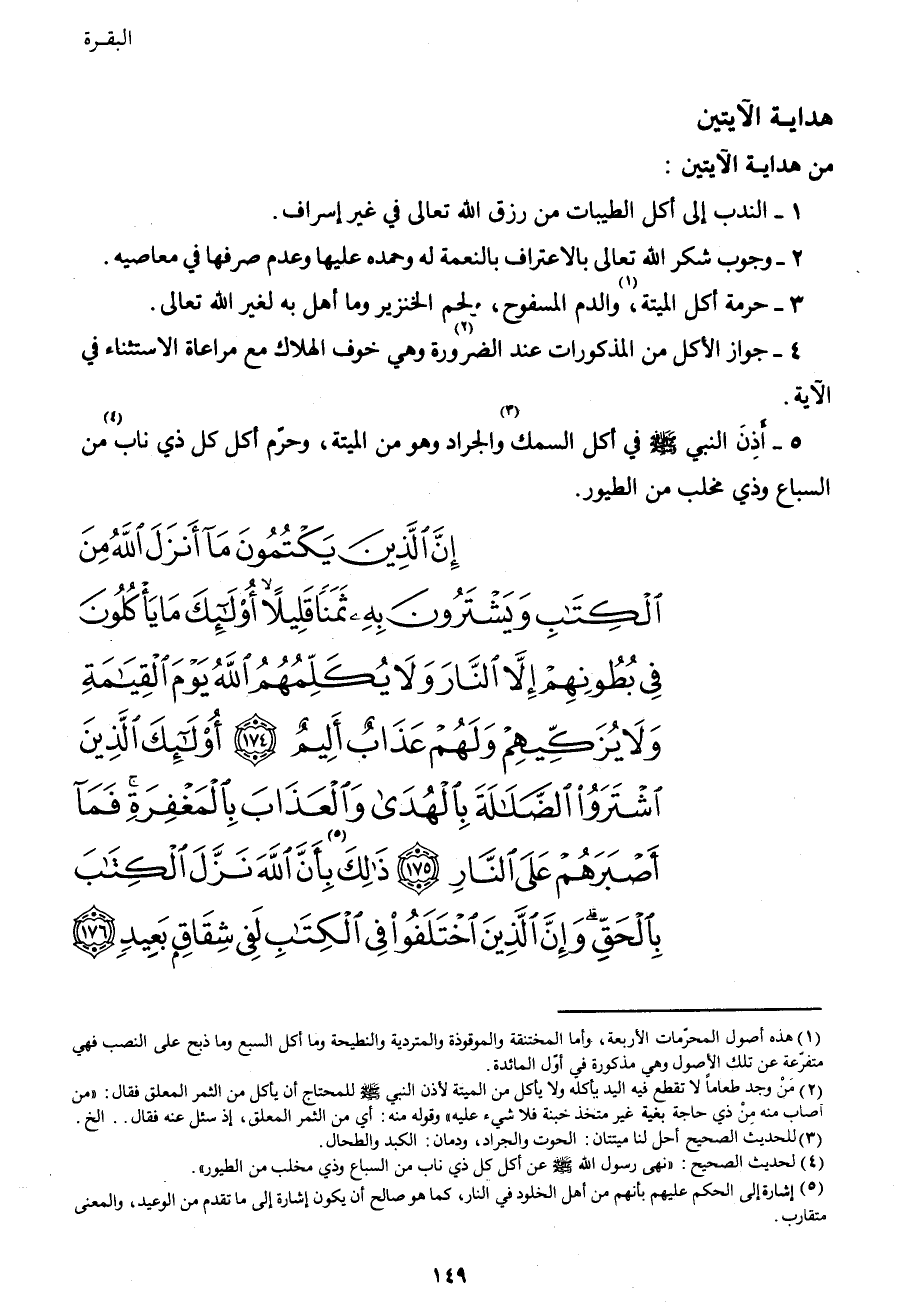 البقـرة
هدايـة الآيتين
من هدايـة الآيتين :
١ ـ الندب إلى أكل الطيبات من رزق الله تعالى في غير إسراف.
٢ ـ وجوب شكر الله تعالى بالاعتراف بالنعمة له وحمده عليها وعدم صرفها في معاصيه.
٣ ـ حرمة أكل الميتة(١)، والدم المسفوح، ولحم الخنزير وما أهل به لغير الله تعالى.
٤ ـ جواز الأكل من المذكورات عند الضرورة(٢) وهي خوف الهلاك مع مراعاة الاستثناء في
الآية.
٥ ـ أَذِنَ النبي ﷺ في أكل السمك(٣) والجراد وهو من الميتة، وحرّم أكل كل ذي ناب(٤) من
السباع وذي مخلب من الطيور.
إِنَّ ٱلَّذِينَ يَكۡتُمُونَ مَآ أَنزَلَ ٱللَّهُ مِنَ
ٱلۡكِتَٰبِ وَيَشۡتَرُونَ بِهِۦ ثَمَنٗا قَلِيلًا أُوْلَٰٓئِكَ مَا يَأۡكُلُونَ
فِي بُطُونِهِمۡ إِلَّا ٱلنَّارَ وَلَا يُكَلِّمُهُمُ ٱللَّهُ يَوۡمَ ٱلۡقِيَٰمَةِ
وَلَا يُزَكِّيهِمۡ وَلَهُمۡ عَذَابٌ أَلِيمٌ ١٧٤ أُوْلَٰٓئِكَ ٱلَّذِينَ
ٱشۡتَرَوُاْ ٱلضَّلَٰلَةَ بِٱلۡهُدَىٰ وَٱلۡعَذَابَ بِٱلۡمَغۡفِرَةِۚ فَمَآ
أَصۡبَرَهُمۡ عَلَى ٱلنَّارِ ١٧٥ ذَٰلِكَ(٥) بِأَنَّ ٱللَّهَ نَزَّلَ ٱلۡكِتَٰبَ
بِٱلۡحَقِّۗ وَإِنَّ ٱلَّذِينَ ٱخۡتَلَفُواْ فِي ٱلۡكِتَٰبِ لَفِي شِقَاقِۭ بَعِيدٖ ١٧٦
(١) هذه أصول المحرّمات الأربعة، وأما المختنقة والموقوذة والمتردية والنطيحة وما أكل السبع وما ذبح على النصب فهي
متفرّعة عن تلك الأصول وهي مذكورة في أوّل المائدة.
(٢) مَنْ وجد طعاماً لا تقطع فيه اليد يأكله ولا يأكل من الميتة لأذن النبي ﷺ للمحتاج أن يأكل من الثمر المعلق فقال: «من
أصاب منه مِنْ ذي حاجة بغية غير متخذ خبنة فلا شيء عليه» وقوله منه: أي من الثمر المعلق، إذ سئل عنه فقال.. الخ.
(٣) للحديث الصحيح أحل لنا ميتتان: الحوت والجراد، ودمان: الكبد والطحال.
(٤) لحديث الصحيح: «نهى رسول الله ﷺ عن أكل كل ذي ناب من السباع وذي مخلب من الطيور».
(٥) إشارة إلى الحكم عليهم بأنهم من أهل الخلود في النار، كما هو صالح أن يكون إشارة إلى ما تقدم من الوعيد، والمعنى
متقارب.
١٤٩